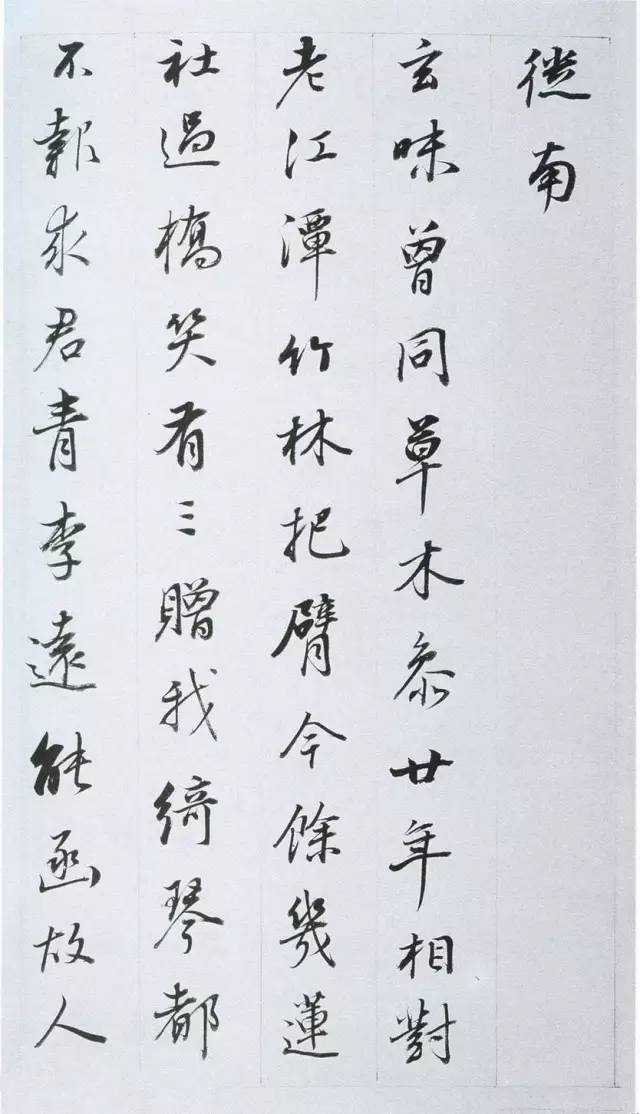 從南
玄味曾同草木參廿年相對
老江潭竹林把臂今餘幾蓮
社過橋笑有三贈我綺琴都
不報求君青李遠能函故人